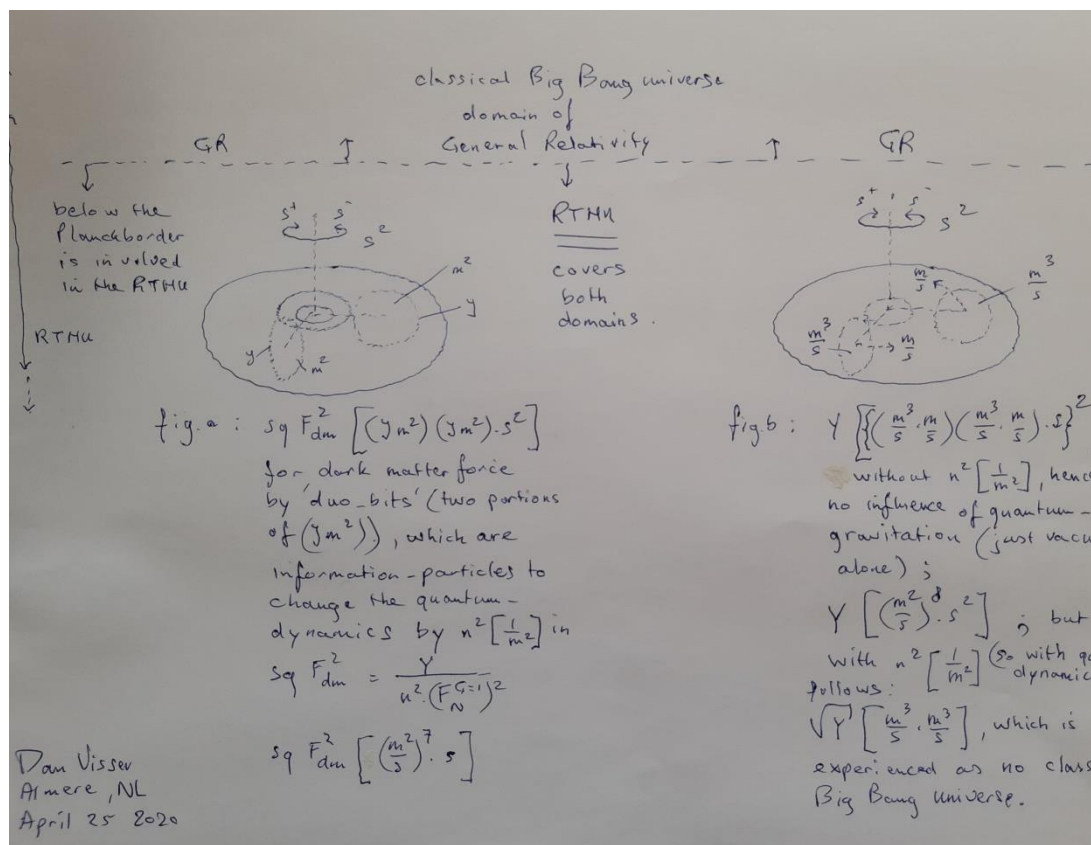 classical Big Bang universe
domain of
GR ↑ General Relativity ↑ GR
below the
Planckborder
is involved
in the RTHU
RTHU
s⁺ s⁻
s²
m²
y
y
m²
RTHU
covers
both
domains.
s⁺ s⁻
s²
m/s
m³/s
m³/s
m/s
fig.a : sq F²dm [(ym²)(ym²).s²]
for dark matter force
by 'duo-bits' (two portions
of (ym²)), which are
information-particles to
change the quantum-
dynamics by n² [1/m²] in
sq F²dm = Y / n².(F_N^{G=1})²
sq F²dm [(m²/s)⁷ . s]
fig.b : Y [{(m³/s . m/s)(m³/s . m/s) . s}²
without n² [1/m²], henc
no influence of quantum-
gravitation (just vacu
alone) ;
Y [(m²/s)⁸ . s²] ; but
with n² [1/m²] (so with qu
dynamic
follows:
√Y [m³/s . m³/s], which is
experienced as no class
Big Bang universe.
Dan Visser
Almere, NL
April 25 2020